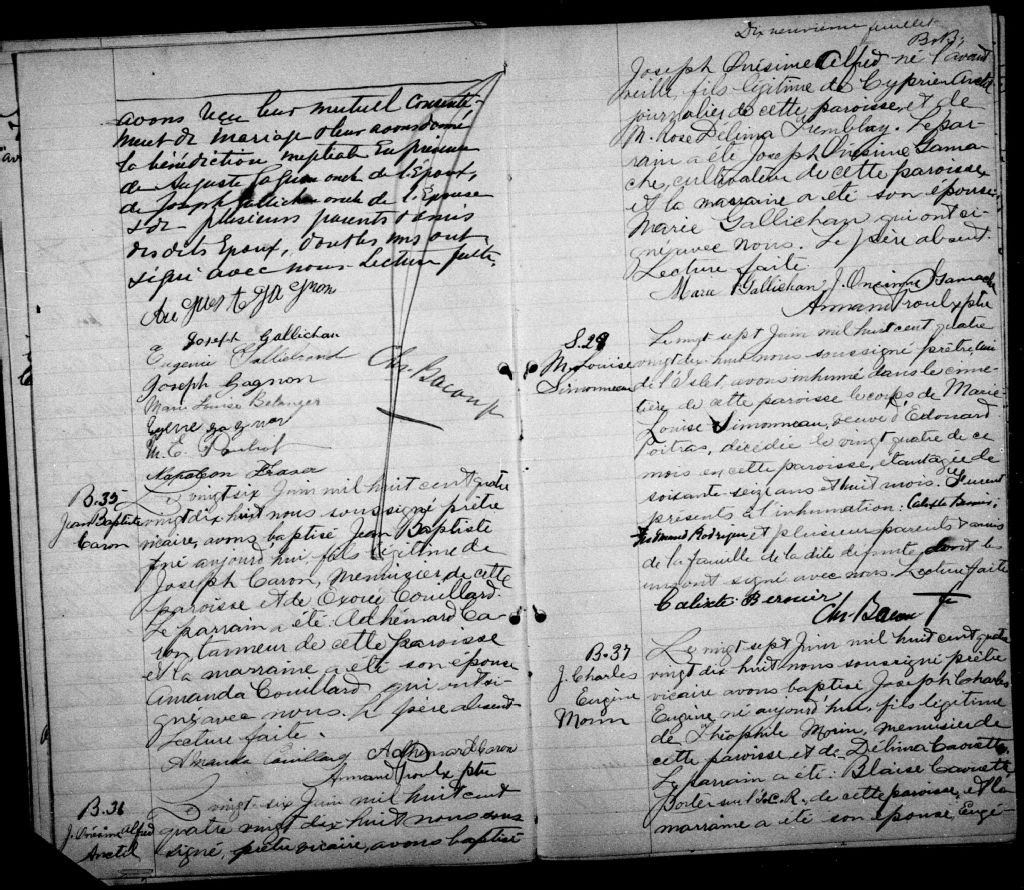 avons reçu leur mutuel consente-
ment de mariage & leur avons donné
la bénédiction nuptiale En présence
de Auguste Gagnon oncle de l'Epoux,
de Joseph Gallichan oncle de l'Epouse
& de plusieurs parents & amis
des dits Epoux, dont les uns ont
signé avec nous. Lecture faite.
August gagnon
Joseph Gallichan
Eugenie
Joseph Gagnon
Marie Louise Belanger
gagnon
M. E.
Napoleon Fraser
Chs. Bacon Ptr
B. 35
Jean Baptiste
Caron
Le vingt six Juin mil huit cent quatre
vingt dix huit nous soussigné prêtre
vicaire, avons baptisé Jean Baptiste
né aujourd'hui, fils légitime de
Joseph Caron, menuisier de cette
paroisse et de Exorée Couillard.
Le parrain a été: Adhémard Ca-
ron tanneur de cette paroisse
et la marraine a été son épouse
Amanda Couillard qui ont si-
gné avec nous. Le père absent
Lecture faite.
Amanda Couillard Adhémard Caron
Armand Proulx ptre
B. 36
J. Onésime Alfred
Anctil
Le vingt-six Juin mil huit cent
quatre vingt dix huit nous sous
signé, prêtre vicaire, avons baptisé
Dix neuvième feuillet
Joseph Onésime Alfred né l'avant
veille, fils légitime de Cyprien Anctil
journalier de cette paroisse, et de
M. Rose Délima Tremblay. Le par-
rain a été Joseph Onésime Gama-
che, cultivateur de cette paroisse
et la marraine a été son épouse
Marie Gallichan qui ont si-
gné avec nous. Le père absent.
Lecture faite
Marie Gallichan J. Onésime Gamache
Armand Proulx ptre
S. 28
M. Louise
Simonneau
Le vingt sept Juin mil huit cent quatre
vingt dix-huit nous soussigné prêtre, curé
de l'Islet avons inhumé dans le cime-
tière de cette paroisse le corps de Marie
Louise Simonneau, veuve d'Edouard
Poitras, décédée le vingt quatre de ce
mois en cette paroisse, étant agée de
soixante-seize ans et huit mois. Furent
présents à l'inhumation: Calixte Bernier,
Edmund Rodrigue et plusieurs parents & amis
de la famille de la dite defunte, dont les
uns ont signé avec nous. Lecture faite
Calixte Bernier
Chs. Bacon Ptr
B. 37
J. Charles
Eugène
Morin
Le vingt sept Juin mil huit cent quatre
vingt dix huit nous soussigné prêtre
vicaire avons baptisé Joseph Charles
Eugène, né aujourd'hui, fils légitime
de Théophile Morin, menuisier de
cette paroisse et de Délima Caouette.
Le parrain a été: Blaise Caouette
Porter sur l'I.C.R. de cette paroisse, et la
marraine a été son épouse Eugé-